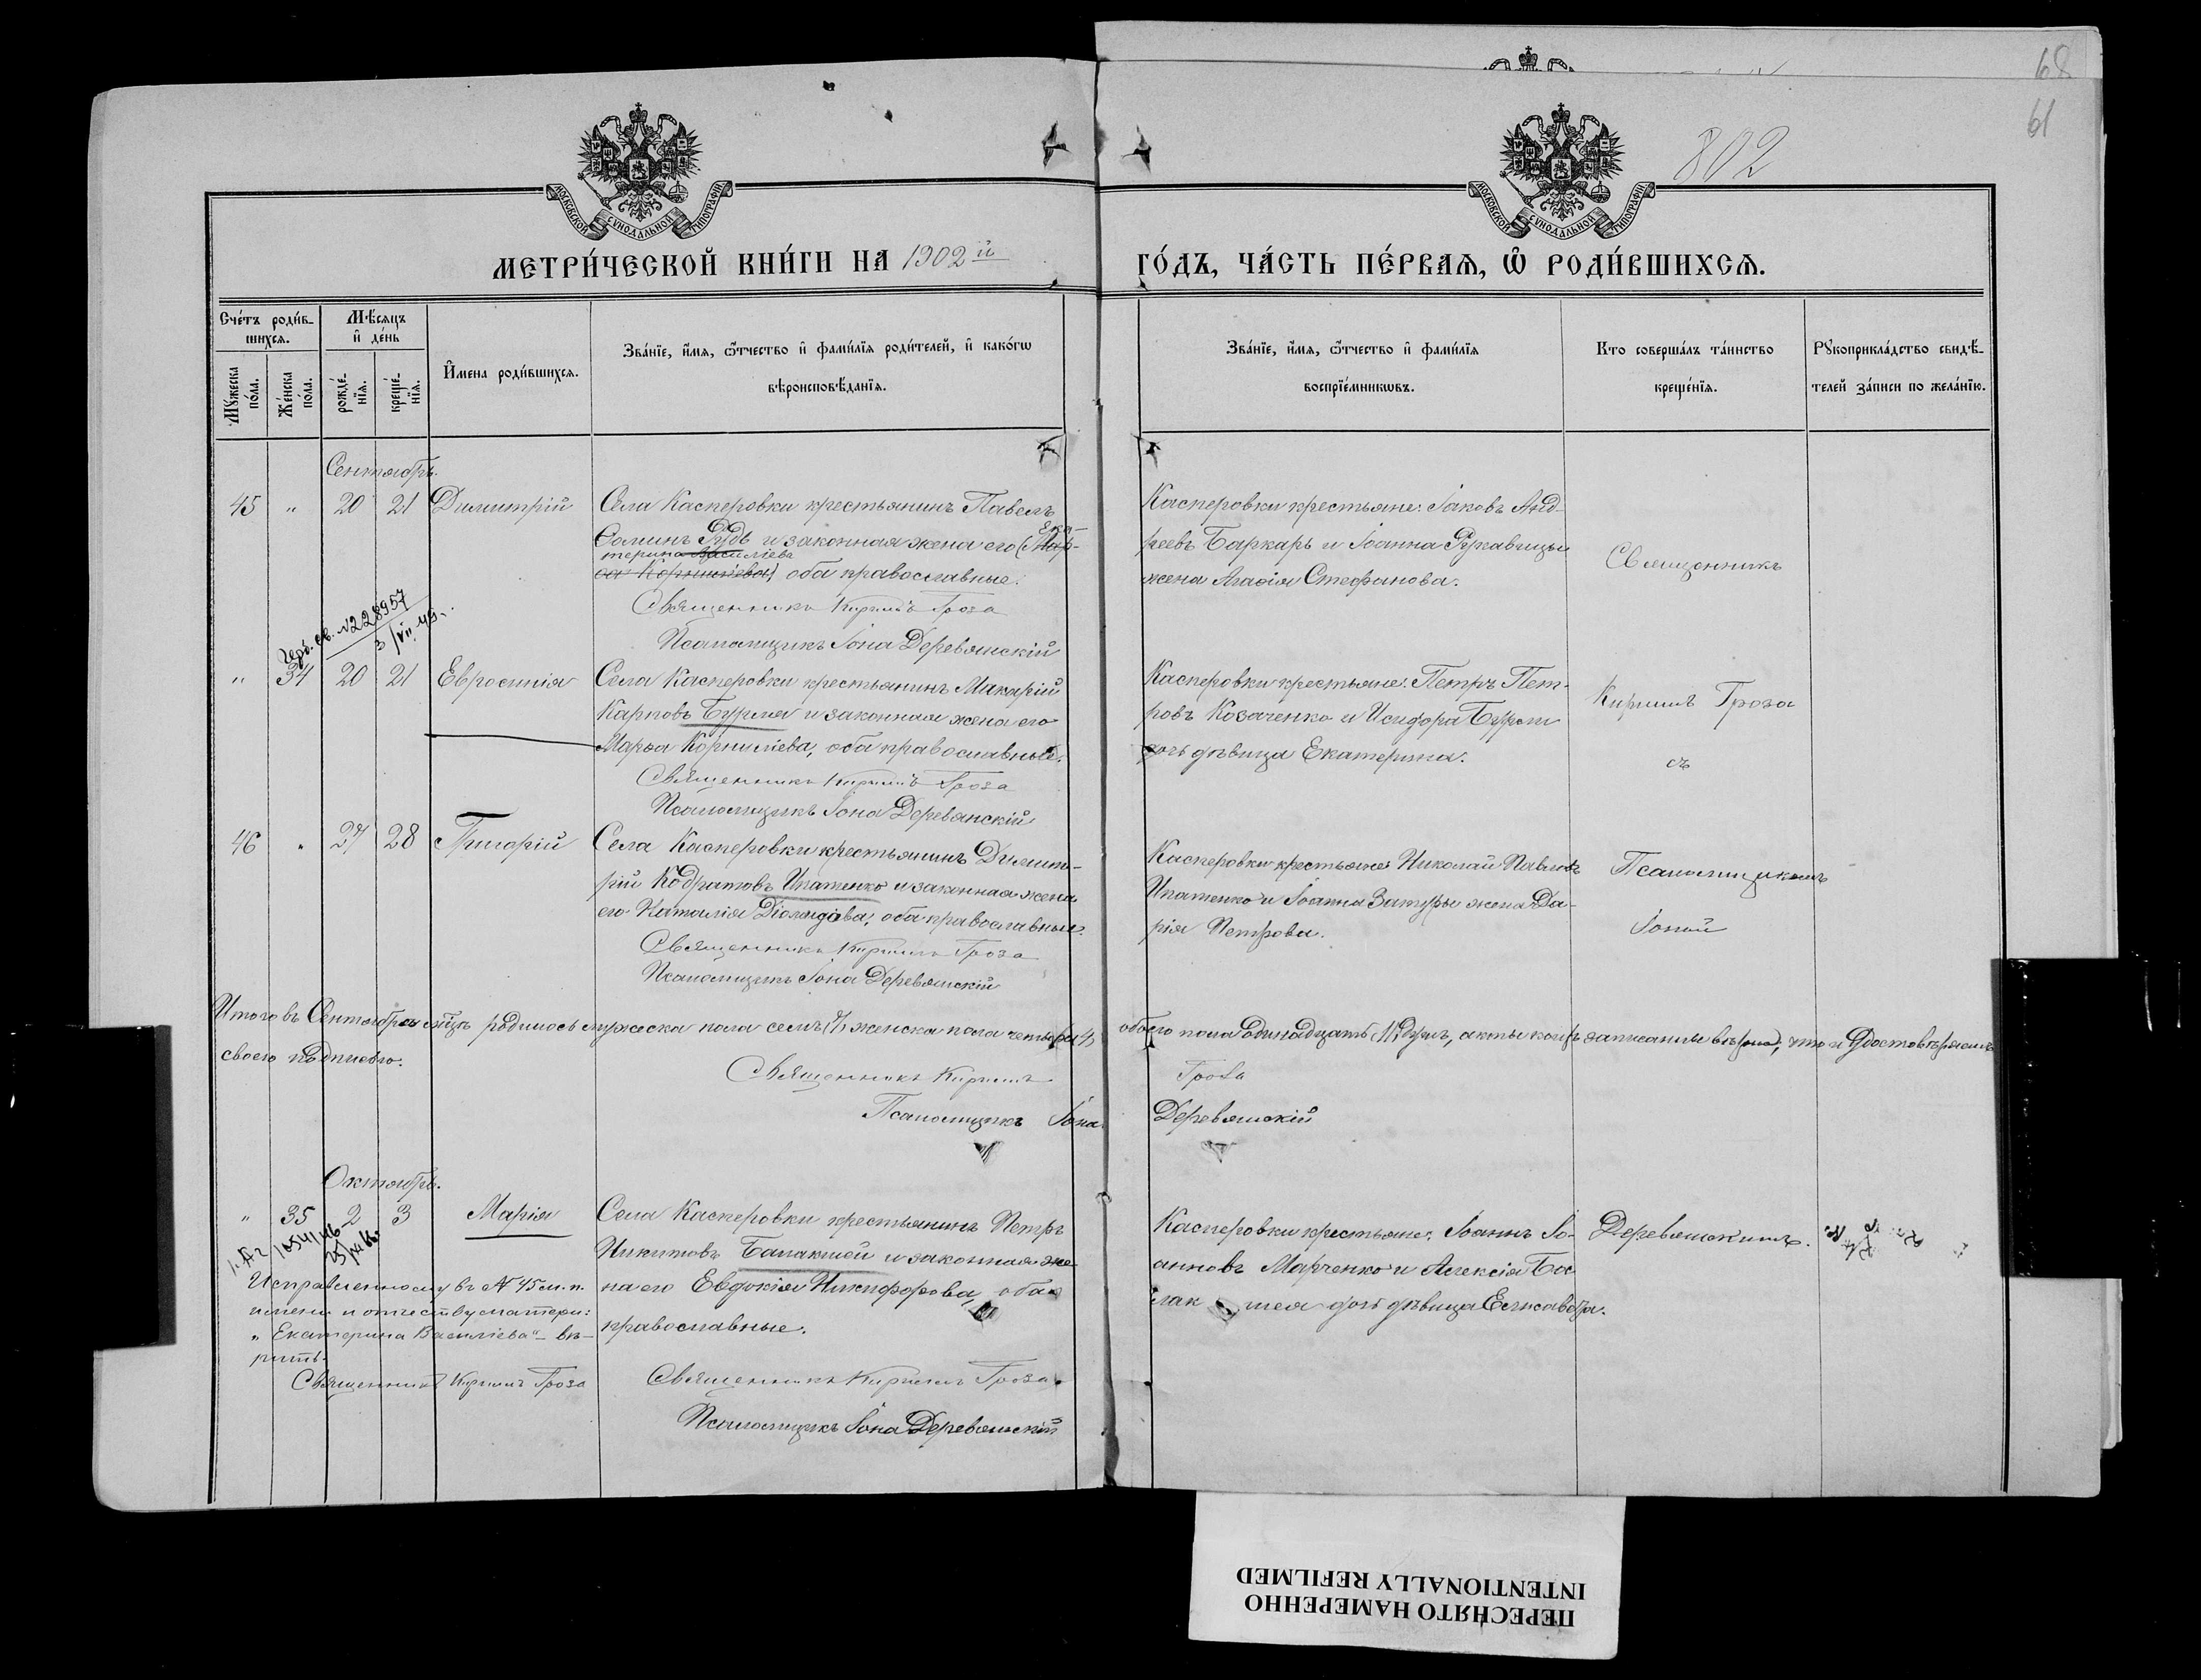 68
61
802
МОСКОВСКОЙ СУНОДАЛЬНОЙ ТИПОГРАФІИ
МОСКОВСКОЙ СУНОДАЛЬНОЙ ТИПОГРАФІИ
МЕТРИ́ЧЕСКОЙ КНИ́ГИ НА 1902 й
ГО́ДЪ, ЧА́СТЬ ПЕ́РВАѦ, Ѡ҆ РОДИ́ВШИХСѦ.
Сче́тъ роди́в-
шихсѧ.
Мѣ́сѧцъ
и҆ де́нь
Мꙋ́жеска
по́ла.
Же́нска
по́ла.
рожде́-
нїѧ.
креще́-
нїѧ.
И҆мена роди́вшихсѧ.
Зва́нїе, и҆́мѧ, ѻ҆́тчество и҆ фами́лїѧ роди́телей, и҆ како́гѡ
вѣроисповѣ́данїѧ.
Зва́нїе, и҆́мѧ, ѻ҆́тчество и҆ фами́лїѧ
воспрїе́мникѡвъ.
Кто соверша́лъ та́инство
креще́нїѧ.
Рꙋкоприкла́дство свидѣ́-
телей за́писи по жела́нїю.
Сентябрь.
45 " 20 21 Димитрій
Села Касперовки крестьянинъ Павелъ
Ѳоминъ Рудь и законная жена его (Мар-
Ека-
терина Василіева
ѳа Корниліева) оба православные.
Священникъ Кириллъ Гроза
Псаломщикъ Іона Деревянскій
Касперовки крестьяне: Іаковъ Анд-
реевъ Баркарь и Іоанна Рукавицы
жена Агаѳія Стефанова.
Священникъ
св. №228957
3/VII 49
" 34 20 21 Евросинія
Села Касперовки крестьянинъ Макарій
Карповъ Бурма и законная жена его
Марѳа Корниліева, оба православные.
Священникъ Кириллъ Гроза
Псаломщикъ Іона Деревянскій
Касперовки крестьяне: Петръ Пет-
ровъ Козаченко и Исидора Бурмы
дочь дѣвица Екатерина.
Кириллъ Гроза
съ
46 " 27 28 Григорій
Села Касперовки крестьянинъ Димит-
рій Кодратовъ Ипатенко и законная жена
его Наталія Діомидова, оба православные.
Священникъ Кириллъ Гроза
Псаломщикъ Іона Деревянскій
Касперовки крестьяне: Николай Павловъ
Ипатенко и Іоанна Затуры жена Да-
рія Петрова.
Псаломщикомъ
Іоной
Итого въ Сентябрѣ м-цѣ родилось мужеска пола семь (7) женска пола четыре (4) обоего пола одинадцать (11) душъ, акты коихъ записаны вѣрно, что и удостовѣряемъ
своею подписью.
Священникъ Кириллъ Гроза
Псаломщикъ Іона Деревянскій
Октябрь.
" 35 2 3 Марія
Села Касперовки крестьянинъ Петръ
Никитовъ Балакшой и законная же-
на его Евдокія Никифорова, оба
православные.
Священникъ Кириллъ Гроза
Псаломщикъ Іона Деревянскій
Касперовки крестьяне: Іоаннъ Іо-
анновъ Марченко и Алексія
дочь дѣвица Елисавета.
Деревянскимъ.
Исправленному въ №45 м. п.
имени и отчеству матери:
"Екатерина Василіева" вѣ-
рить.
Священникъ Кириллъ Гроза
ПЕРЕСНЯТО НАМЕРЕННО
INTENTIONALLY REFILMED